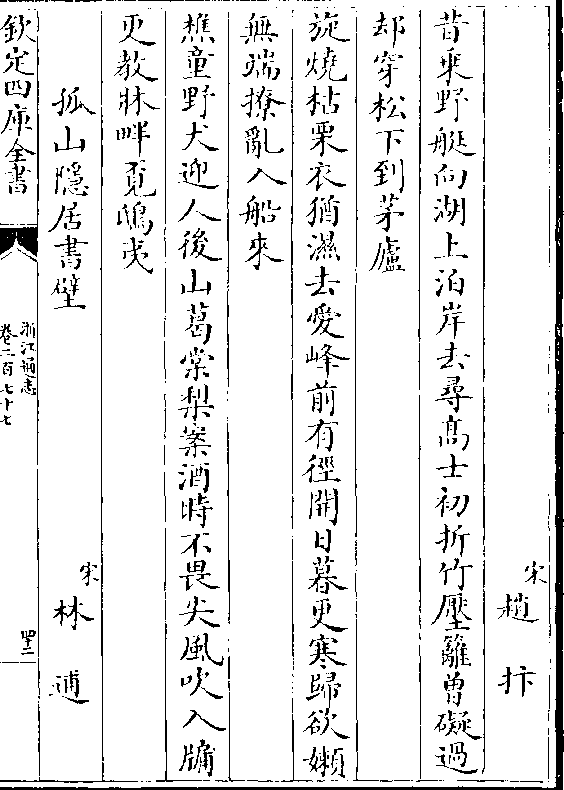 宋趙抃
昔乘野艇向湖上泊岸去尋髙士初折竹壓籬曽礙過
却穿松下到茅廬
旋燒枯栗衣猶濕去愛峰前有徑開日暮更寒歸欲嬾
無端撩亂入船來
樵童野犬迎人後山葛棠梨案酒時不畏尖風吹入牖
更教牀畔覓鴟夷
孤山隱居書壁
宋林逋
欽定四庫全書
浙江通志
卷二百七十七